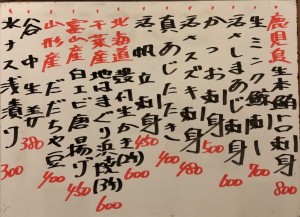 鹿児島産 生本鮪トロ刺身 800
生ミンク鯨刺し 700
活さしまあじ刺身 600
かつお刺身 500
活スズキ刺身 480
真あじたたき 400
活帆立刺身 450
北海道産 殻付生かき(2ヶ) 600
千葉産 地はまぐり浜焼(3ケ) 600
富山産 白エビ唐揚げ 450
山形産 だだちゃ豆 400
谷中生姜 380
水ナス浅漬け 300